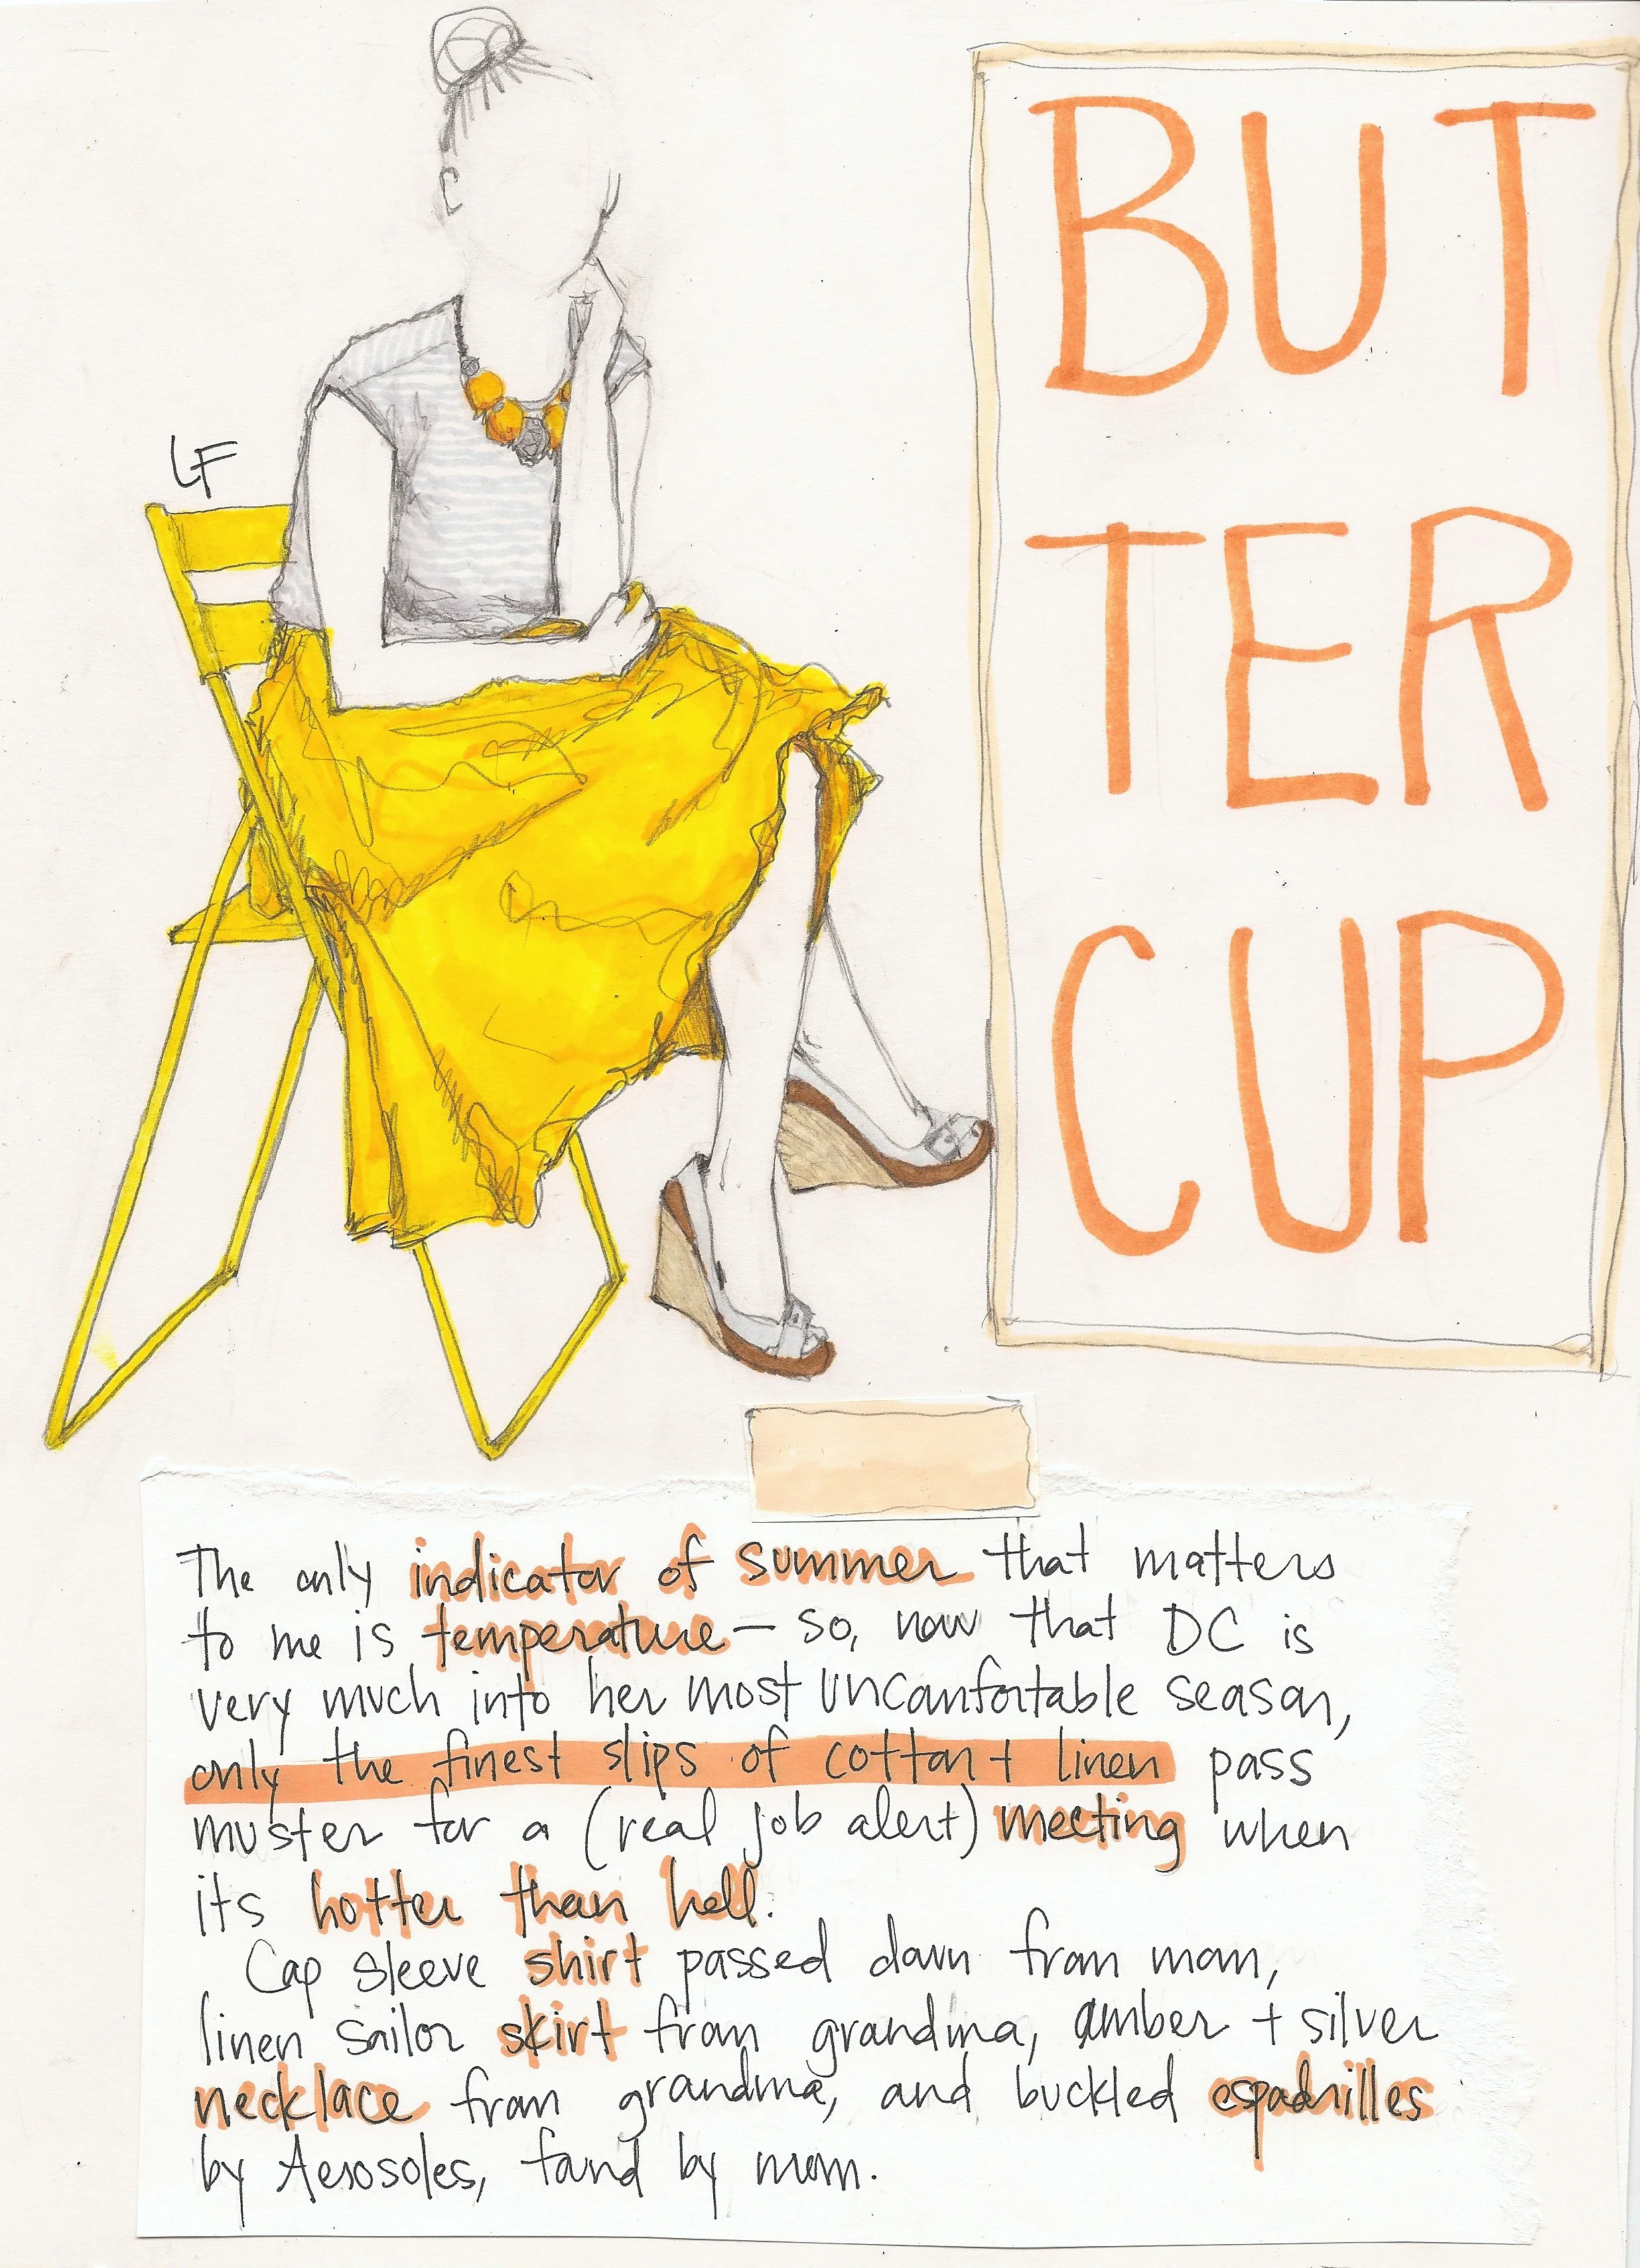 BUT
TER
CUP
LF
The only indicator of summer that matters
to me is temperature — so, now that DC is
very much into her most uncomfortable season,
only the finest slips of cotton + linen pass
muster for a (real job alert) meeting when
its hotter than hell.
Cap sleeve shirt passed down from mom,
linen sailor skirt from grandma, amber + silver
necklace from grandma, and buckled espadrilles
by Aerosoles, found by mom.